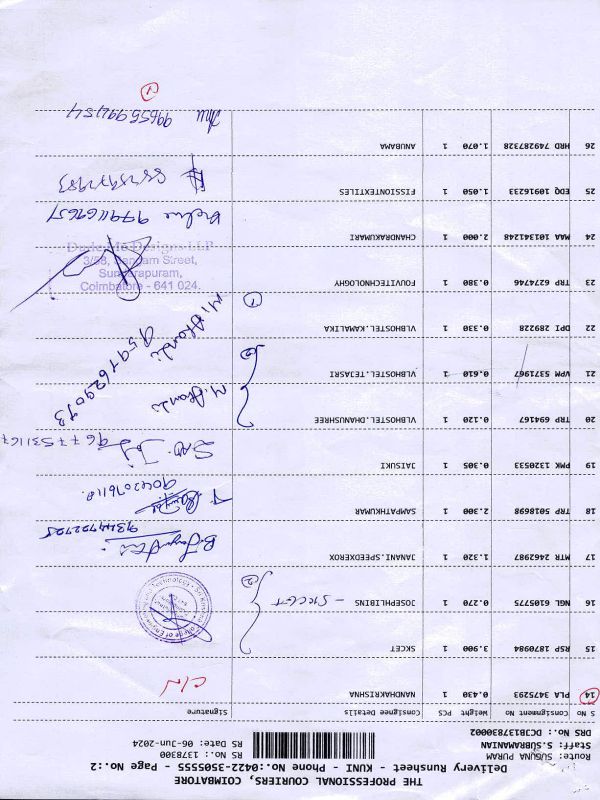 THE PROFESSIONAL COURIERS, COIMBATORE
Delivery Runsheet - KUNI - Phone No:0422-3505555 - Page No.:2
Route: SUGUNA PURAM
Staff: S.SUBRAMANIAN
DRS No.: DCB137830002
RS No.: 1378300
RS Date: 06-Jun-2024
S No Consignment No Weight PCS Consignee Details Signature
14 PLA 3475293 0.430 1 NANDHAKRISHNA C/N
15 RSP 1870984 3.900 1 SKCET
16 NGL 6105775 0.270 1 JOSEPHLIBINS - SKCET
2
17 MTR 2462987 1.320 1 JANANI.SPEEDXEROX
93447922725
18 TRP 5018698 2.300 1 SAMPATHKUMAR
9042076118
19 PMK 1320533 0.305 1 JAISUKI
9677531167
20 TRP 694167 0.120 1 VLBHOSTEL.DHANUSHREE
21 VPM 5371967 0.610 1 VLBHOSTEL.TEJASRI
22 DPI 289228 0.330 1 VLBHOSTEL.KAMALIKA
9597629073
1
23 TRP 6274746 0.380 1 FOUVITECHNOLOGHY
Designs LLP
3/58, Street,
Sundarapuram,
Coimbatore - 641 024.
24 MAA 101341248 2.000 1 CHANDRAKUMARI
9791169657
25 EDQ 10916233 1.050 1 FISSIONTEXTILES
26 HRD 749287328 1.070 1 ANUBAMA
Anu 9655992454
1